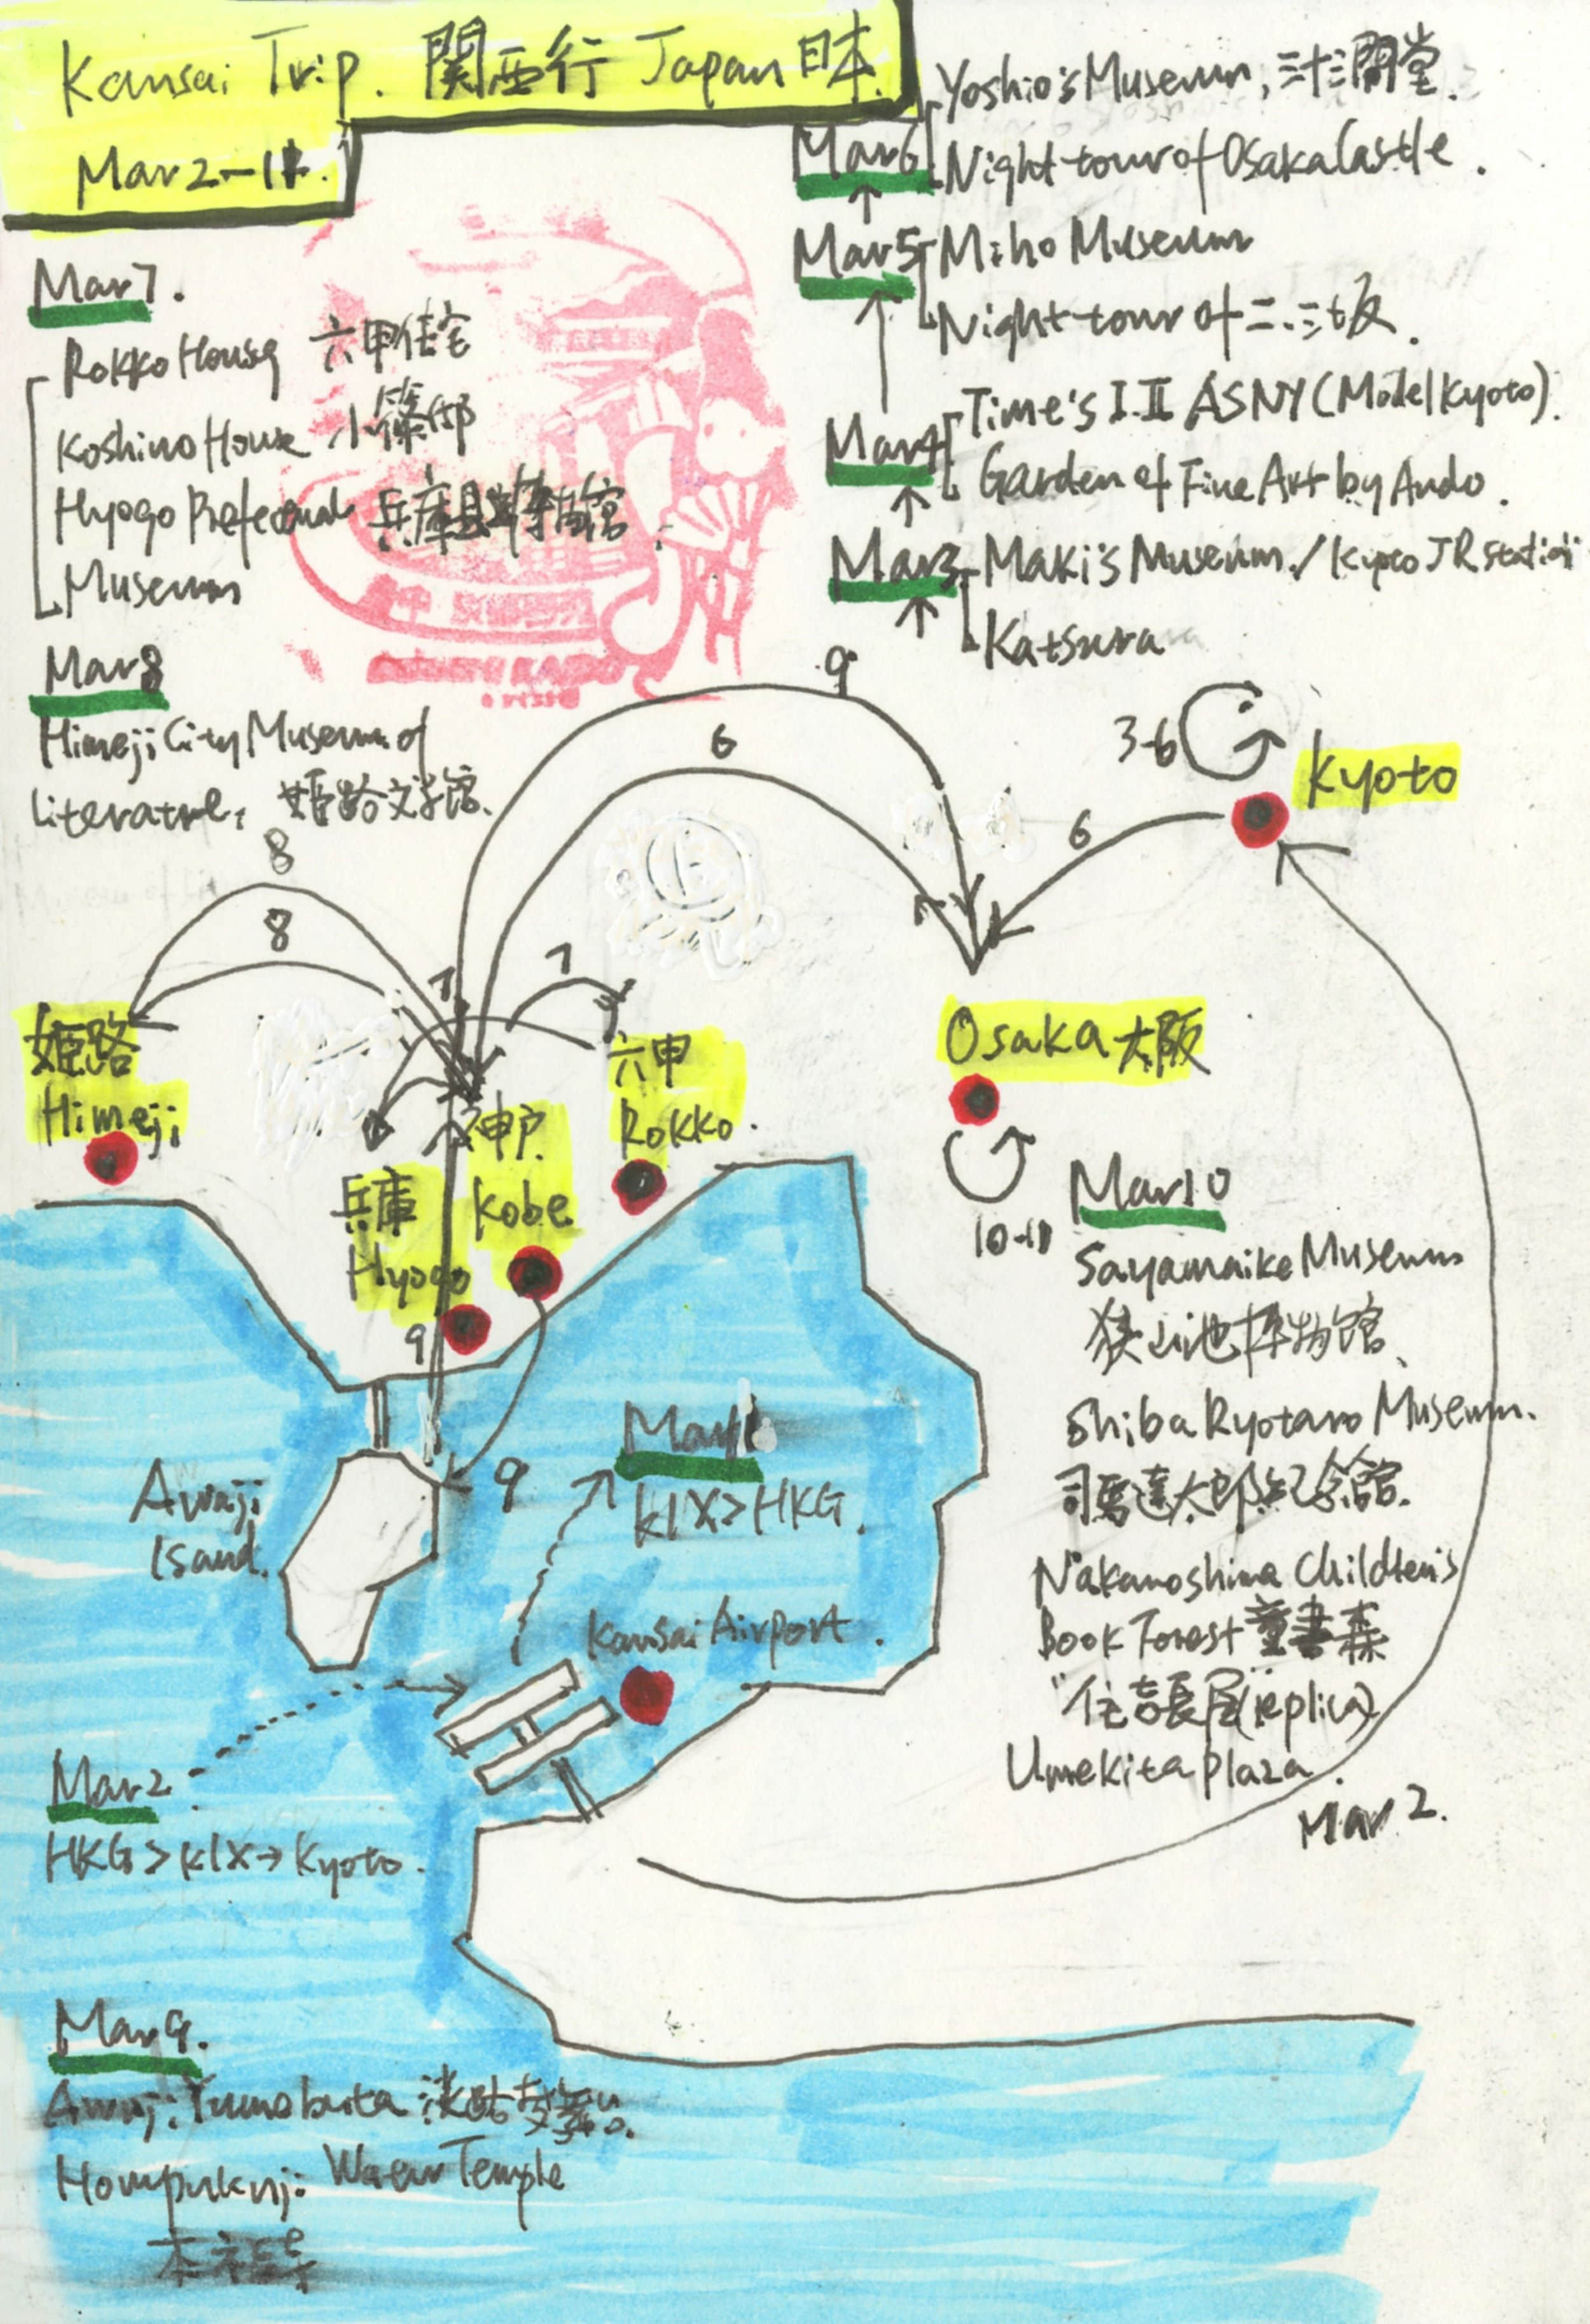 Kansai Trip. 関西行 Japan 日本.
Mar 2-11.
Mar 6
Yoshio's Museum, 三十三間堂.
Night tour of Osaka Castle.
Mar 5
Miho Museum
Night tour of 二.三坂.
Mar 4
Time's I.II ASNY (Model Kyoto).
Garden of Fine Art by Ando.
Mar 3
Maki's Museum / Kyoto JR Station
Katsura
Mar 7.
Rokko House 六甲住宅
Koshino House 小篠邸
Hyogo Prefectural 兵庫県博物館.
Museum
Mar 8
Himeji City Museum of
Literature, 姫路文学館.
9
6
3-6
Kyoto
6
8
8
7
7
姫路
Himeji
六甲
Rokko.
神戸
Kobe
兵庫
Hyogo
9
Osaka 大阪
10-11
Mar 10
Sayamaike Museum
狭山池博物館
Shiba Ryotaro Museum.
司馬遼太郎記念館.
Nakanoshima Children's
Book Forest 童書森
"住吉長屋"(replica)
Umekita Plaza.
Mar 2.
Awaji
Isand.
9
Mar 11
KIX > HKG.
Kansai Airport.
Mar 2
HKG > KIX → Kyoto.
Mar 9.
Awaji Yumebuta
Hompukuji Water Temple